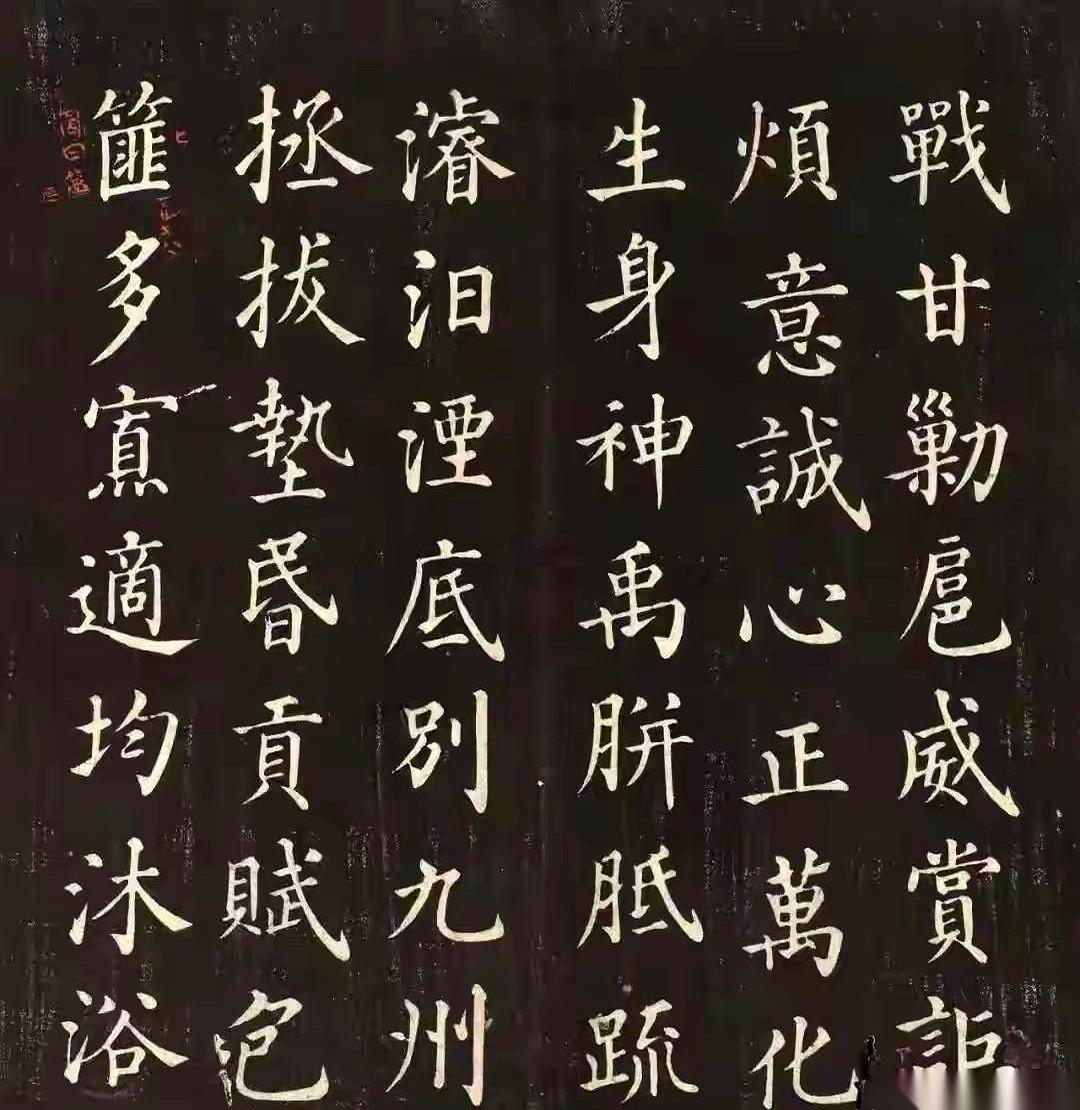 戰甘勦扈威賞詎
煩意誠心正萬化
生身神禹胼胝疏
濬汨湮底別九州
拯拔墊昬貢賦包
篚多寡適均沐浴